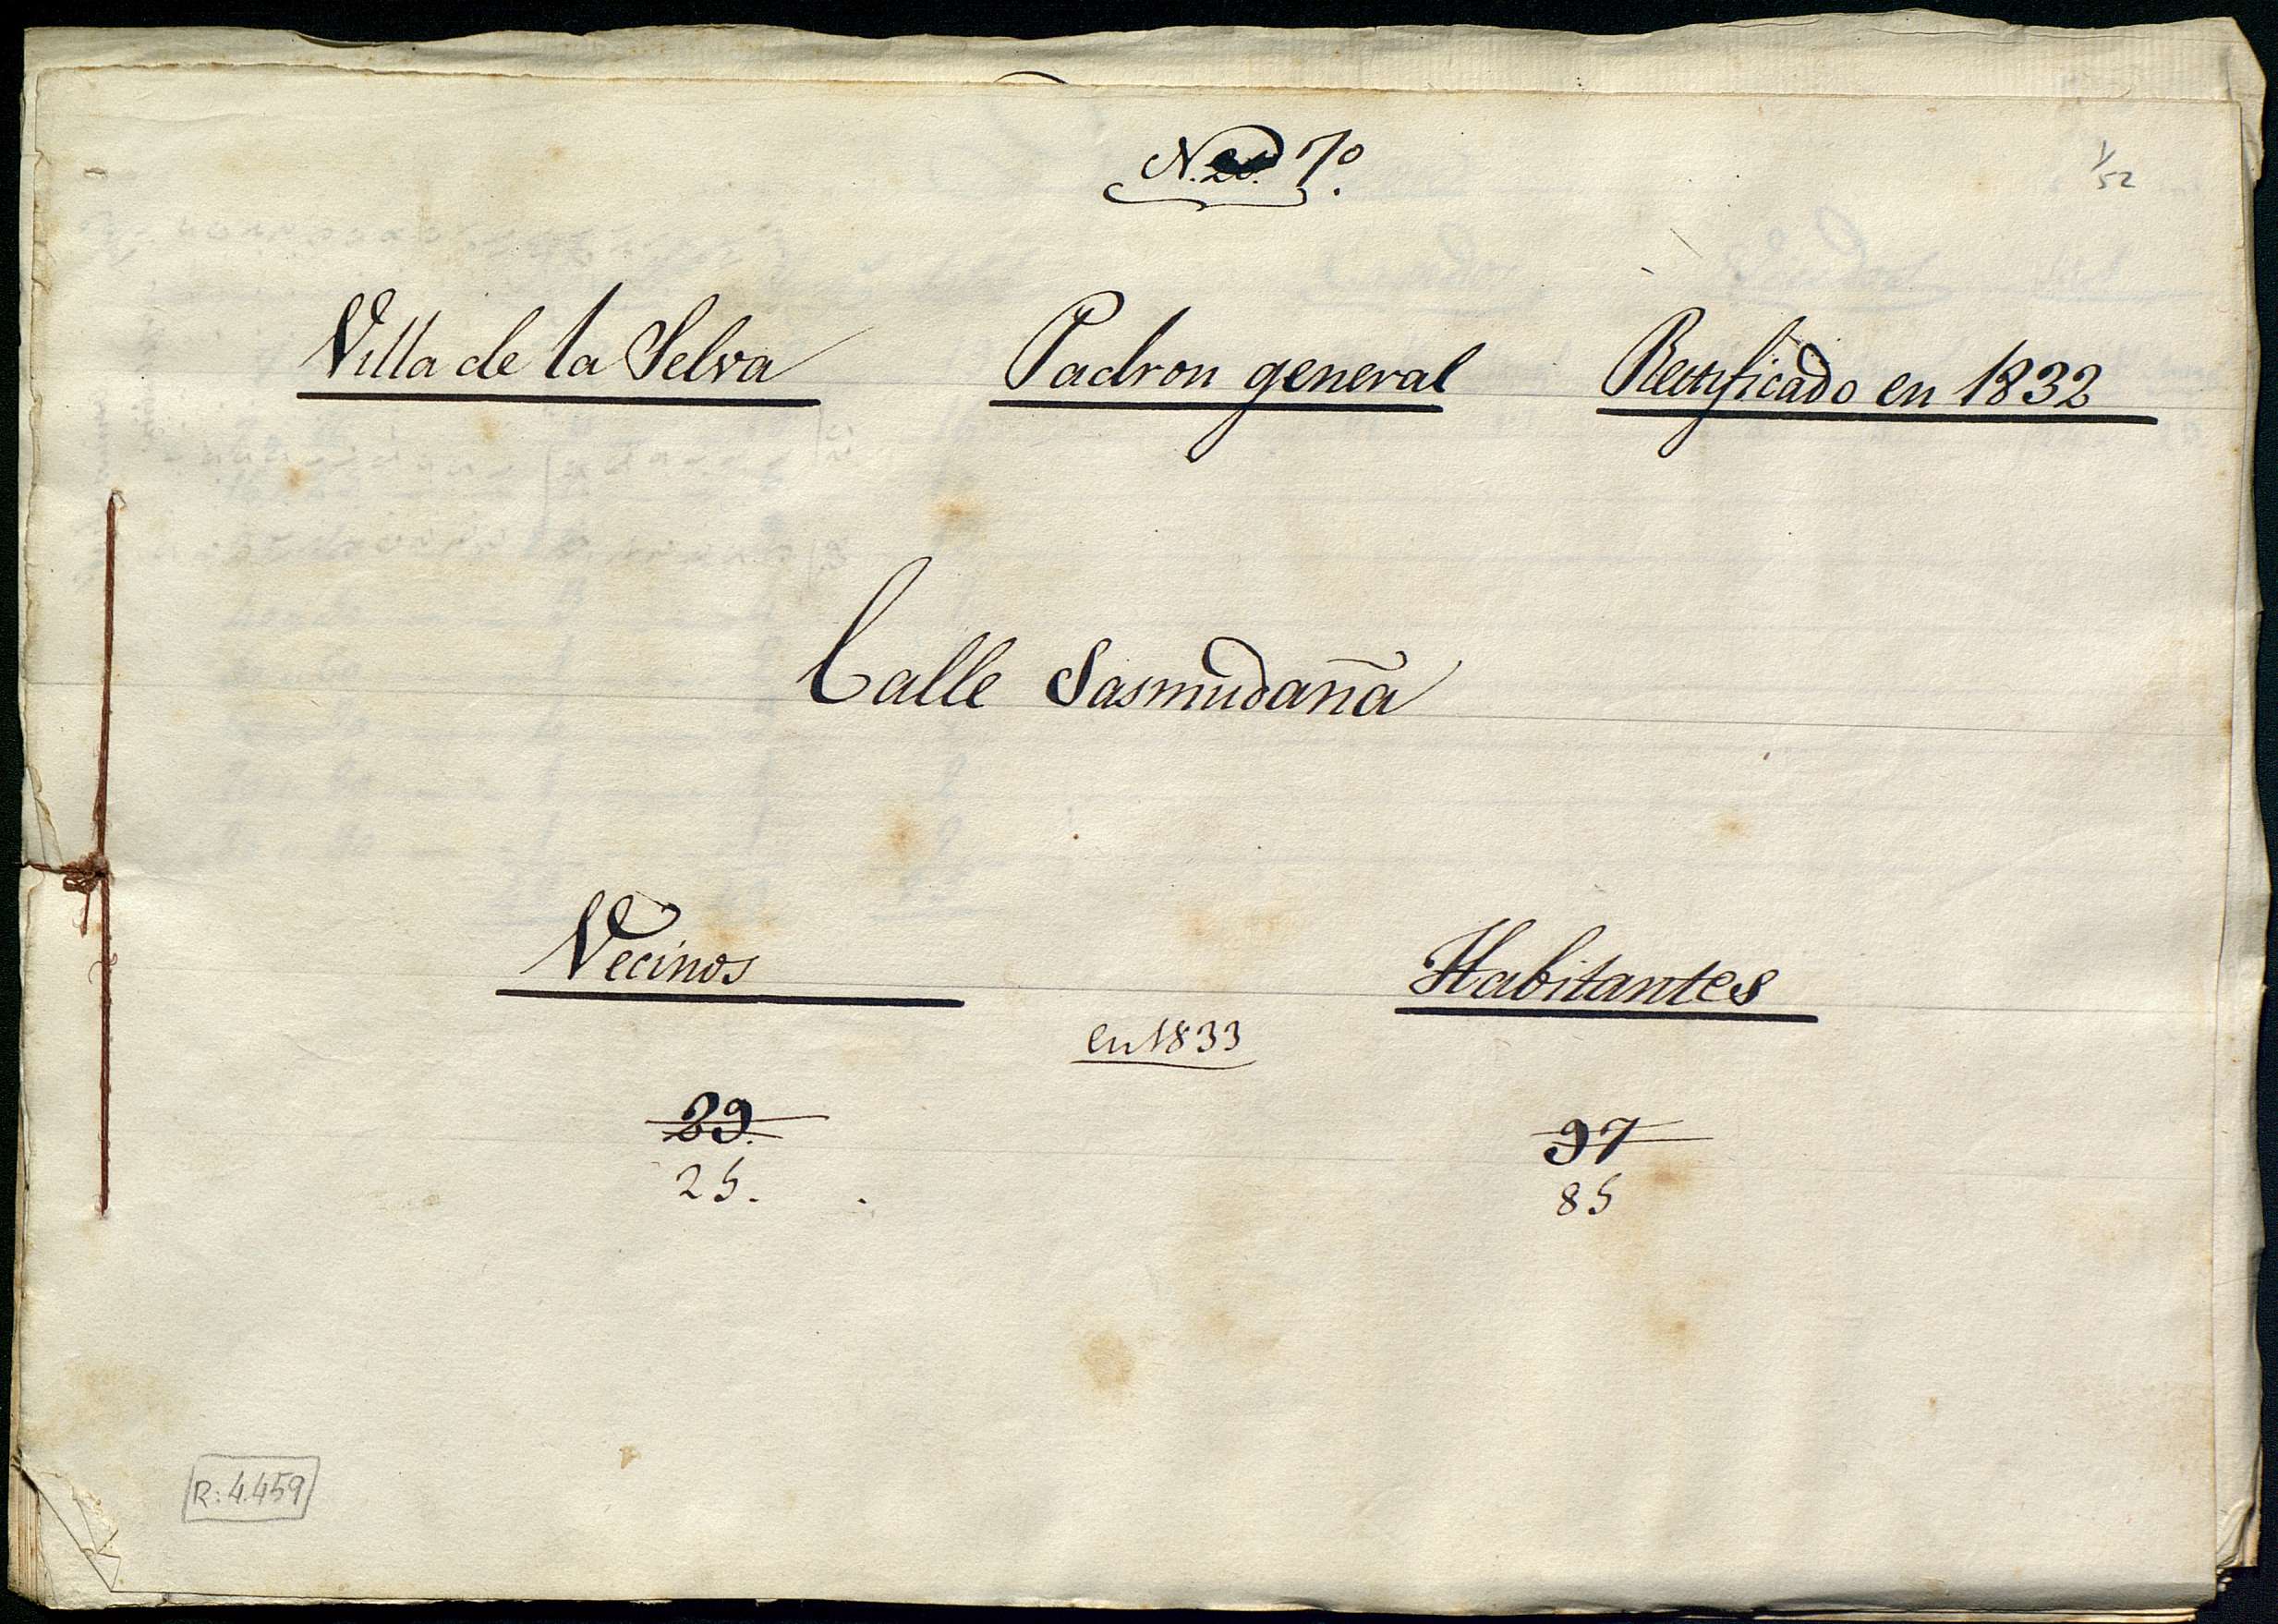 N. 7º.
1/52
Villa de la Selva Padron general Rectificado en 1832
Calle Sasmudaña
Vecinos Habitantes
en 1833
29. 97
25. 85
R: 4.459